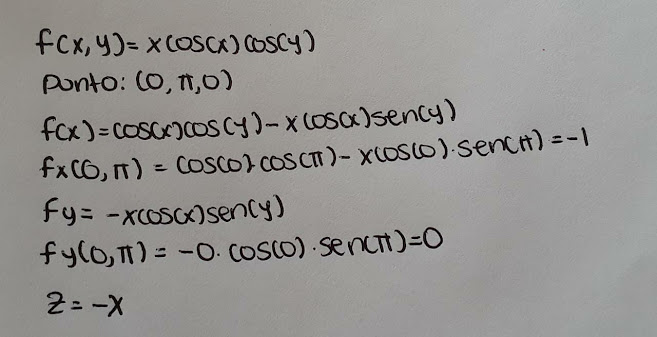 f(x,y)= x cos(x) cos(y)
Ponto: (0, π, 0)
f(x)= cos(x) cos(y) - x cos(x) sen(y)
fx(0, π) = cos(0). cos(π) - x cos(0). sen(π) = -1
fy = -x cos(x) sen(y)
fy(0, π) = -0. cos(0) . sen(π)=0
z = -x